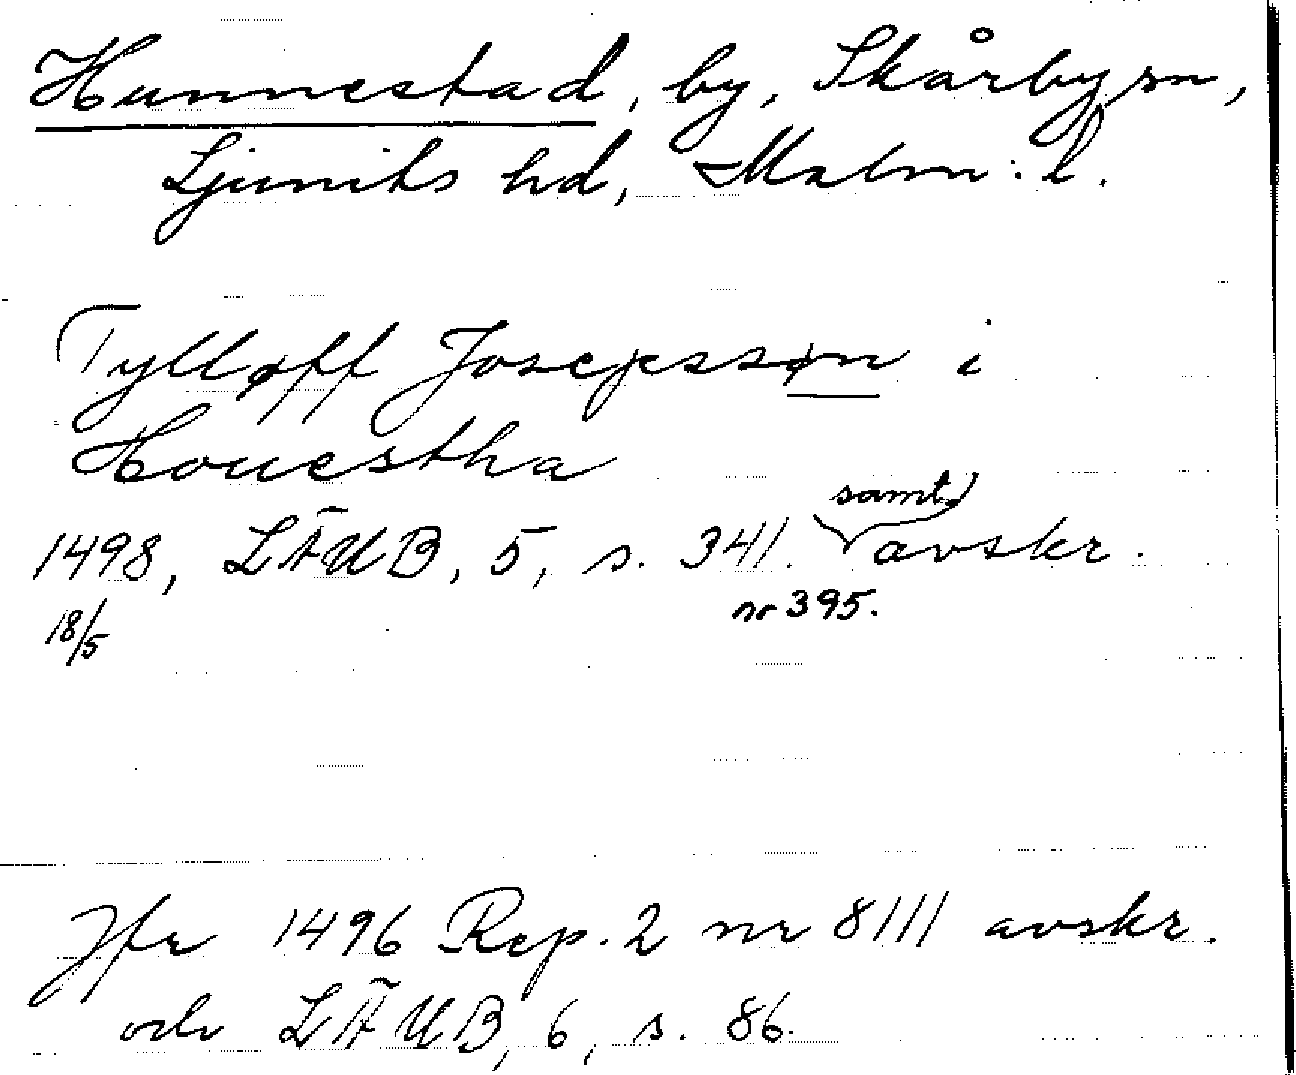 Hunnestad, by, Skårby sn,
Ljunits hd, Malm. l.
Tylløff Josepssøn i
Houestha
samt
1498, LÄUB, 5, s. 341. avskr.
18/5 nr 395.
Jfr 1496 Rep. 2 nr 8111 avskr.
och LÄUB, 6, s. 86.